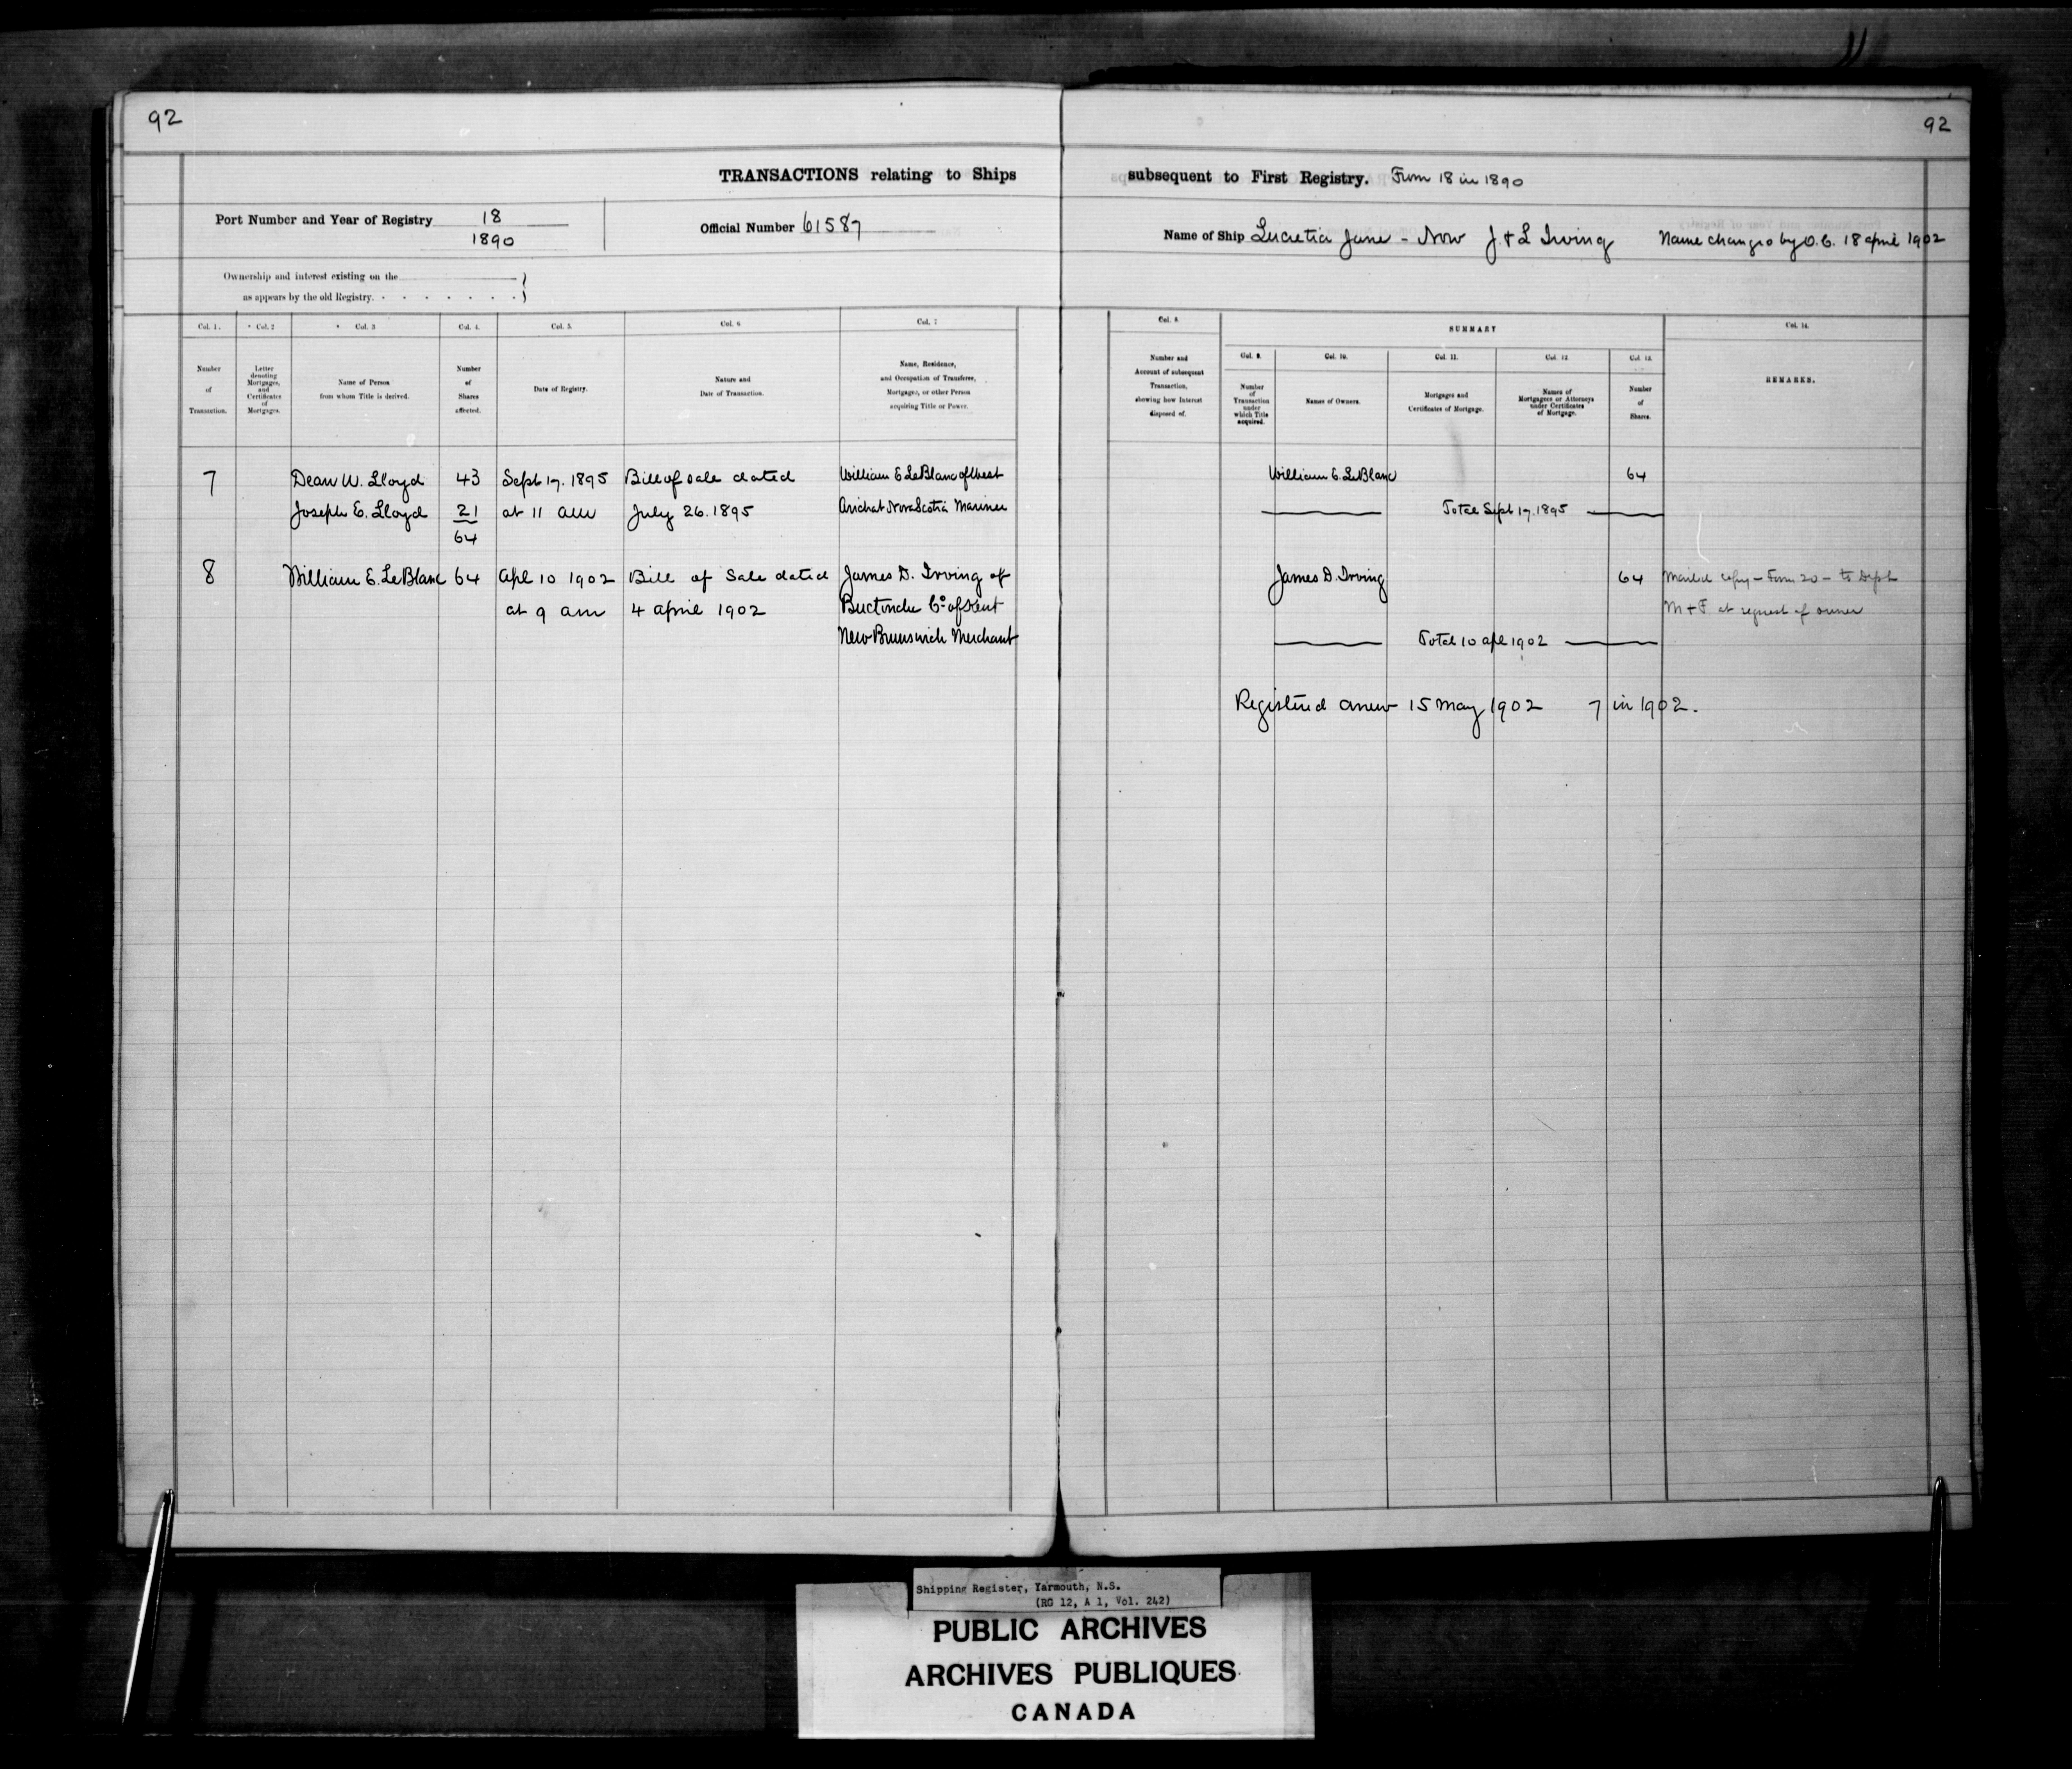 92
92
TRANSACTIONS relating to Ships subsequent to First Registry. From 18 in 1890
Port Number and Year of Registry 18
1890
Official Number 61587
Name of Ship Lucretia Jane - Now J. & L Irving Name changed by O.C. 18 april 1902
Ownership and interest existing on the
as appears by the old Registry.
Col. 1. Col. 2 Col. 3 Col. 4. Col. 5. Col. 6 Col. 7
Number
of
Transaction.
Letter
denoting
Mortgages,
and
Certificates
of
Mortgages.
Name of Person
from whom Title is derived.
Number
of
Shares
affected.
Date of Registry.
Nature and
Date of Transaction.
Name, Residence,
and Occupation of Transferee,
Mortgagee, or other Person
acquiring Title or Power.
Col. 8.
Number and
Account of subsequent
Transaction,
showing how Interest
disposed of.
SUMMARY
Col. 9. Col. 10. Col. 11. Col. 12. Col. 13.
Number
of
Transaction
under
which Title
acquired.
Names of Owners.
Mortgages and
Certificates of Mortgage.
Names of
Mortgagees or Attorneys
under Certificates
of Mortgage.
Number
of
Shares.
Col. 14.
REMARKS.
7 Dean W. Lloyd 43 Sept 17. 1895 Bill of sale dated William E LeBlanc of West
Joseph E. Lloyd 21 at 11 am July 26. 1895 Arichat Nova Scotia Mariner
64
8 William E. LeBlanc 64 Apl 10 1902 Bill of Sale dated James D. Irving of
at 9 am 4 april 1902 Buctouche Co of Kent
New Brunswick Merchant
William E. LeBlanc 64
Total Sept 17. 1895
James D. Irving 64 Mailed copy - Form 20 - to Dept
M + F at request of owner
Total 10 apl 1902
Registered anew 15 May 1902 7 in 1902.
Shipping Register, Yarmouth, N.S.
(RG 12, A 1, Vol. 242)
PUBLIC ARCHIVES
ARCHIVES PUBLIQUES
CANADA